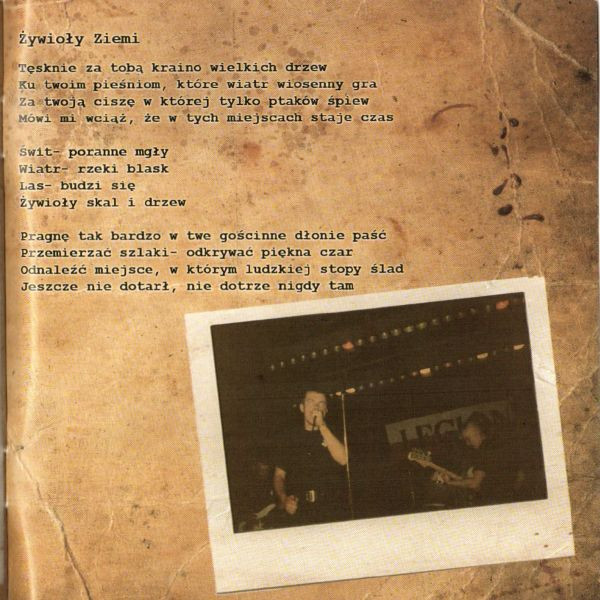 Żywioły Ziemi
Tęsknie za tobą kraino wielkich drzew
Ku twoim pieśniom, które wiatr wiosenny gra
Za twoją ciszę w której tylko ptaków śpiew
Mówi mi wciąż, że w tych miejscach staje czas
Świt- poranne mgły
Wiatr- rzeki blask
Las- budzi się
Żywioły skal i drzew
Pragnę tak bardzo w twe gościnne dłonie paść
Przemierzać szlaki- odkrywać piękna czar
Odnaleźć miejsce, w którym ludzkiej stopy ślad
Jeszcze nie dotarł, nie dotrze nigdy tam
LEGION